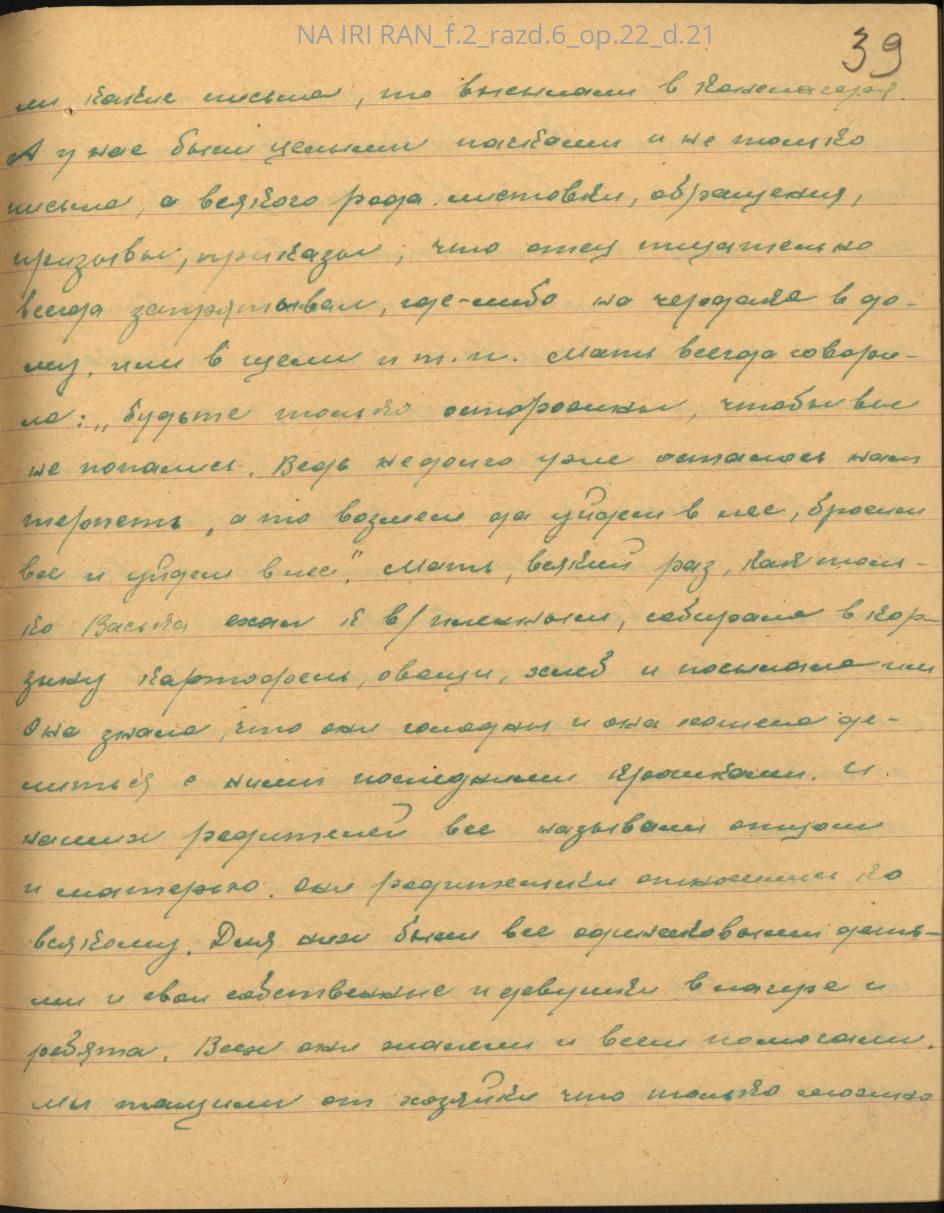 NA IRI RAN_f.2_razd.6_op.22_d.21
39
ли какие письма, то высылали в концлагеря.
А у нас были целыми пачками и не только
письма, а всякого рода листовки, обращения,
призывы, приказы, что отец тщательно
всегда запрятывал, где-либо на чердаке в до-
му, или в щели и т.п. Мать всегда говори-
ла: „будьте только осторожны, чтобы вы
не попались. Ведь недолго уже осталось нам
терпеть, а то возмем да уйдем в лес, бросим
все и уйдем в лес". Мать, всякий раз, как толь-
ко Васька ехал к в/пленным, собирала в кор
зинку картофель, овощи, хлеб и посылала им
Она знала, что они голодны и она хотела де-
литься с ними последними крошками. И
наших родителей все называли отцом
и матерью. Они родительски относились ко
всякому. Для них были все одинаковыми деть-
ми и свои собственные и девушки в лагере и
ребята. Всех они жалели и всем помогали.
Мы тащили от хозяйки что только можно